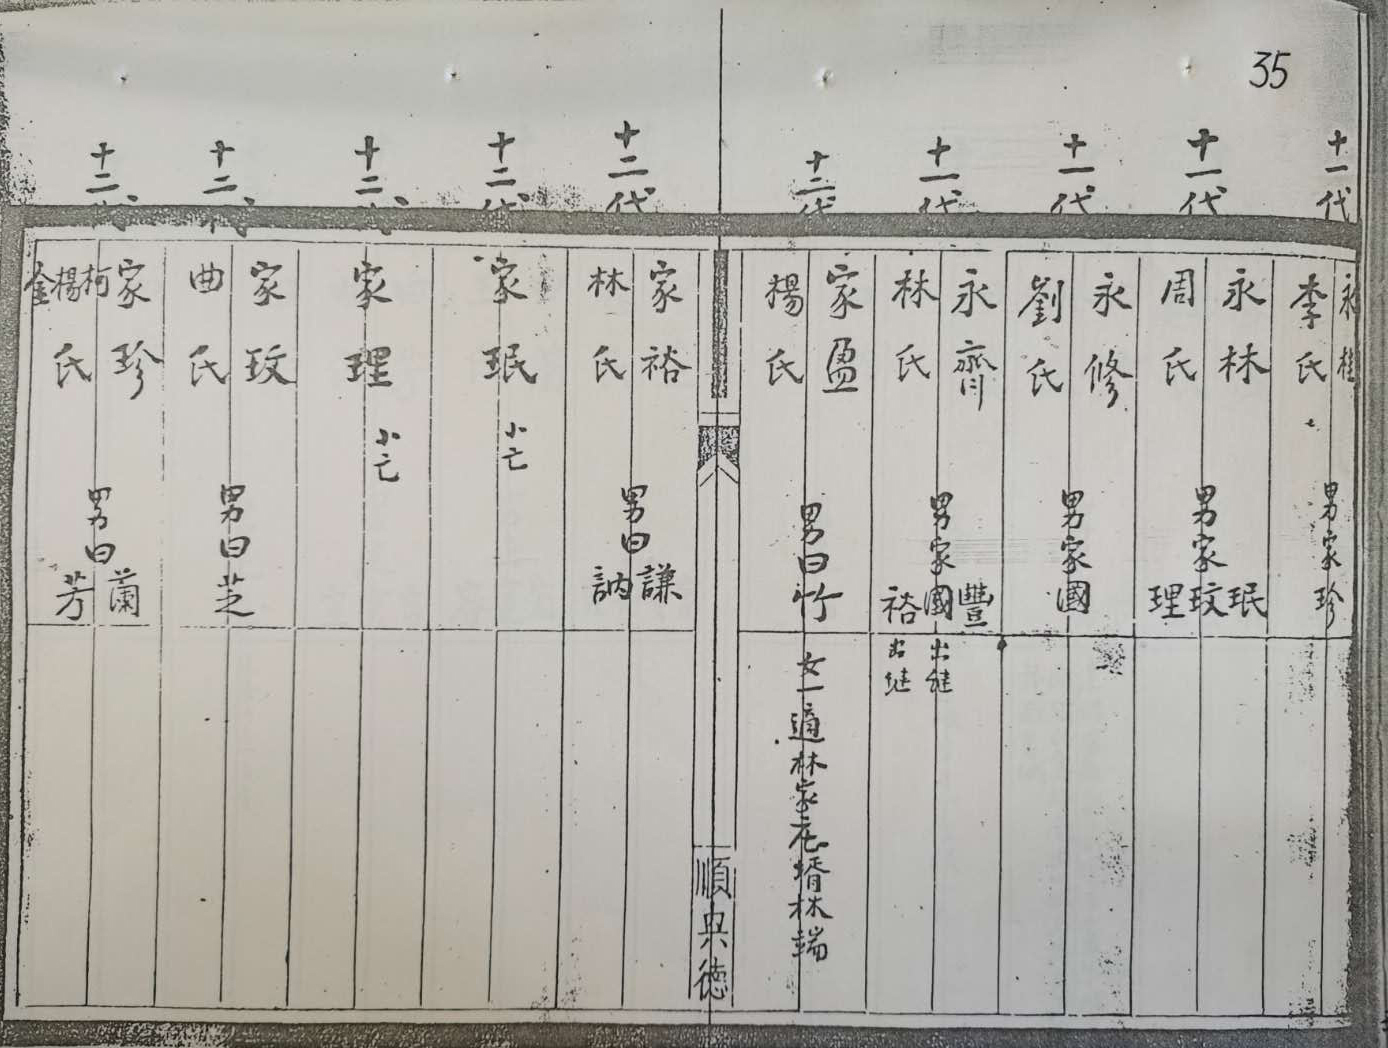 35
十一代
永
李氏
男家珍
十一代
永林
周氏
男家珉玟理
十一代
永修
劉氏
男家國
十一代
永齊
林氏
男家豐國裕
出継
出継
十二代
家盈
楊氏
男曰竹
女一適林家庒壻林端
順興德
十二代
家裕
林氏
男曰謙訥
十二代
家珉
小亡
十二代
家理
小亡
十二代
家玟
曲氏
男曰芝
十二代
家珍
柯楊金氏
男曰蘭芳